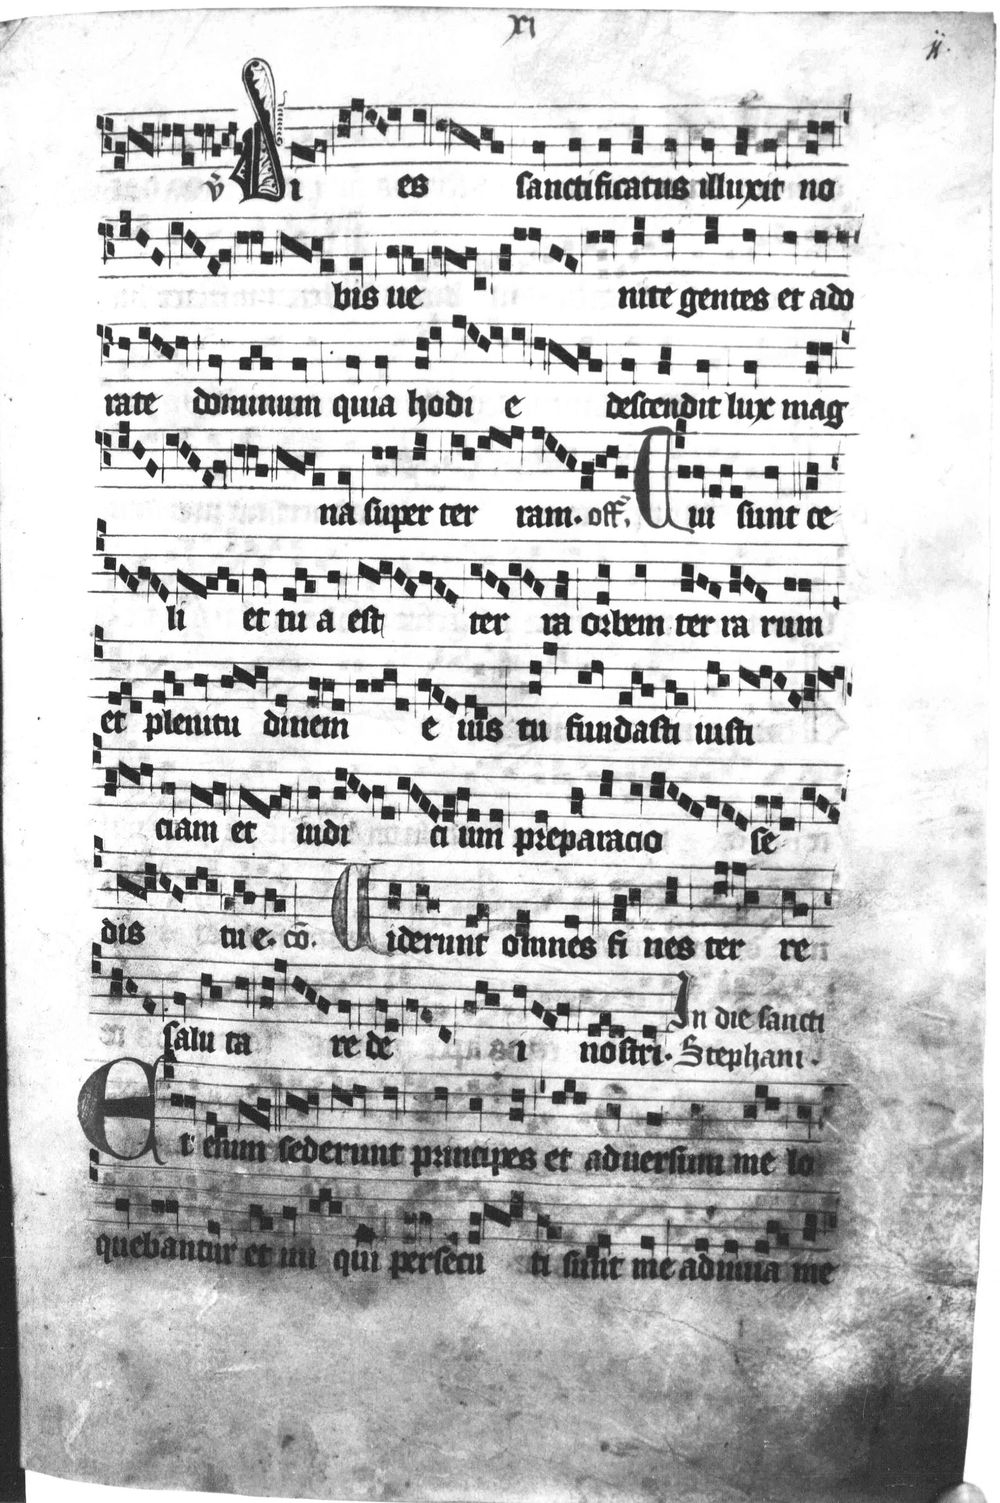 xi
ij.
v̄ Dies sanctificatus illuxit no
bis ue nite gentes et ado
rate dominum quia hodi e descendit lux mag
na super ter ram. off. Tui sunt ce
li et tu a est ter ra orbem ter ra rum
et plenitu dinem e ius tu fundasti iusti
ciam et iudi ci um preparacio se
dis tu e. cō. Uiderunt omnes fi nes ter re
salu ta re de i nostri. In die sancti
Stephani.
Et enim sederunt principes et aduersum me lo
quebantur et ini qui persecu ti sunt me adiuua me